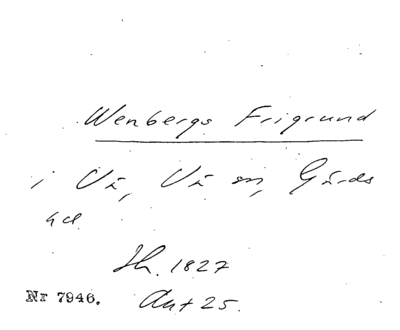 Wenbergs Frigrund
i Vä, Vä sn, Gärds
hd.
Sh. 1827
Nr 7946. Akt 25.